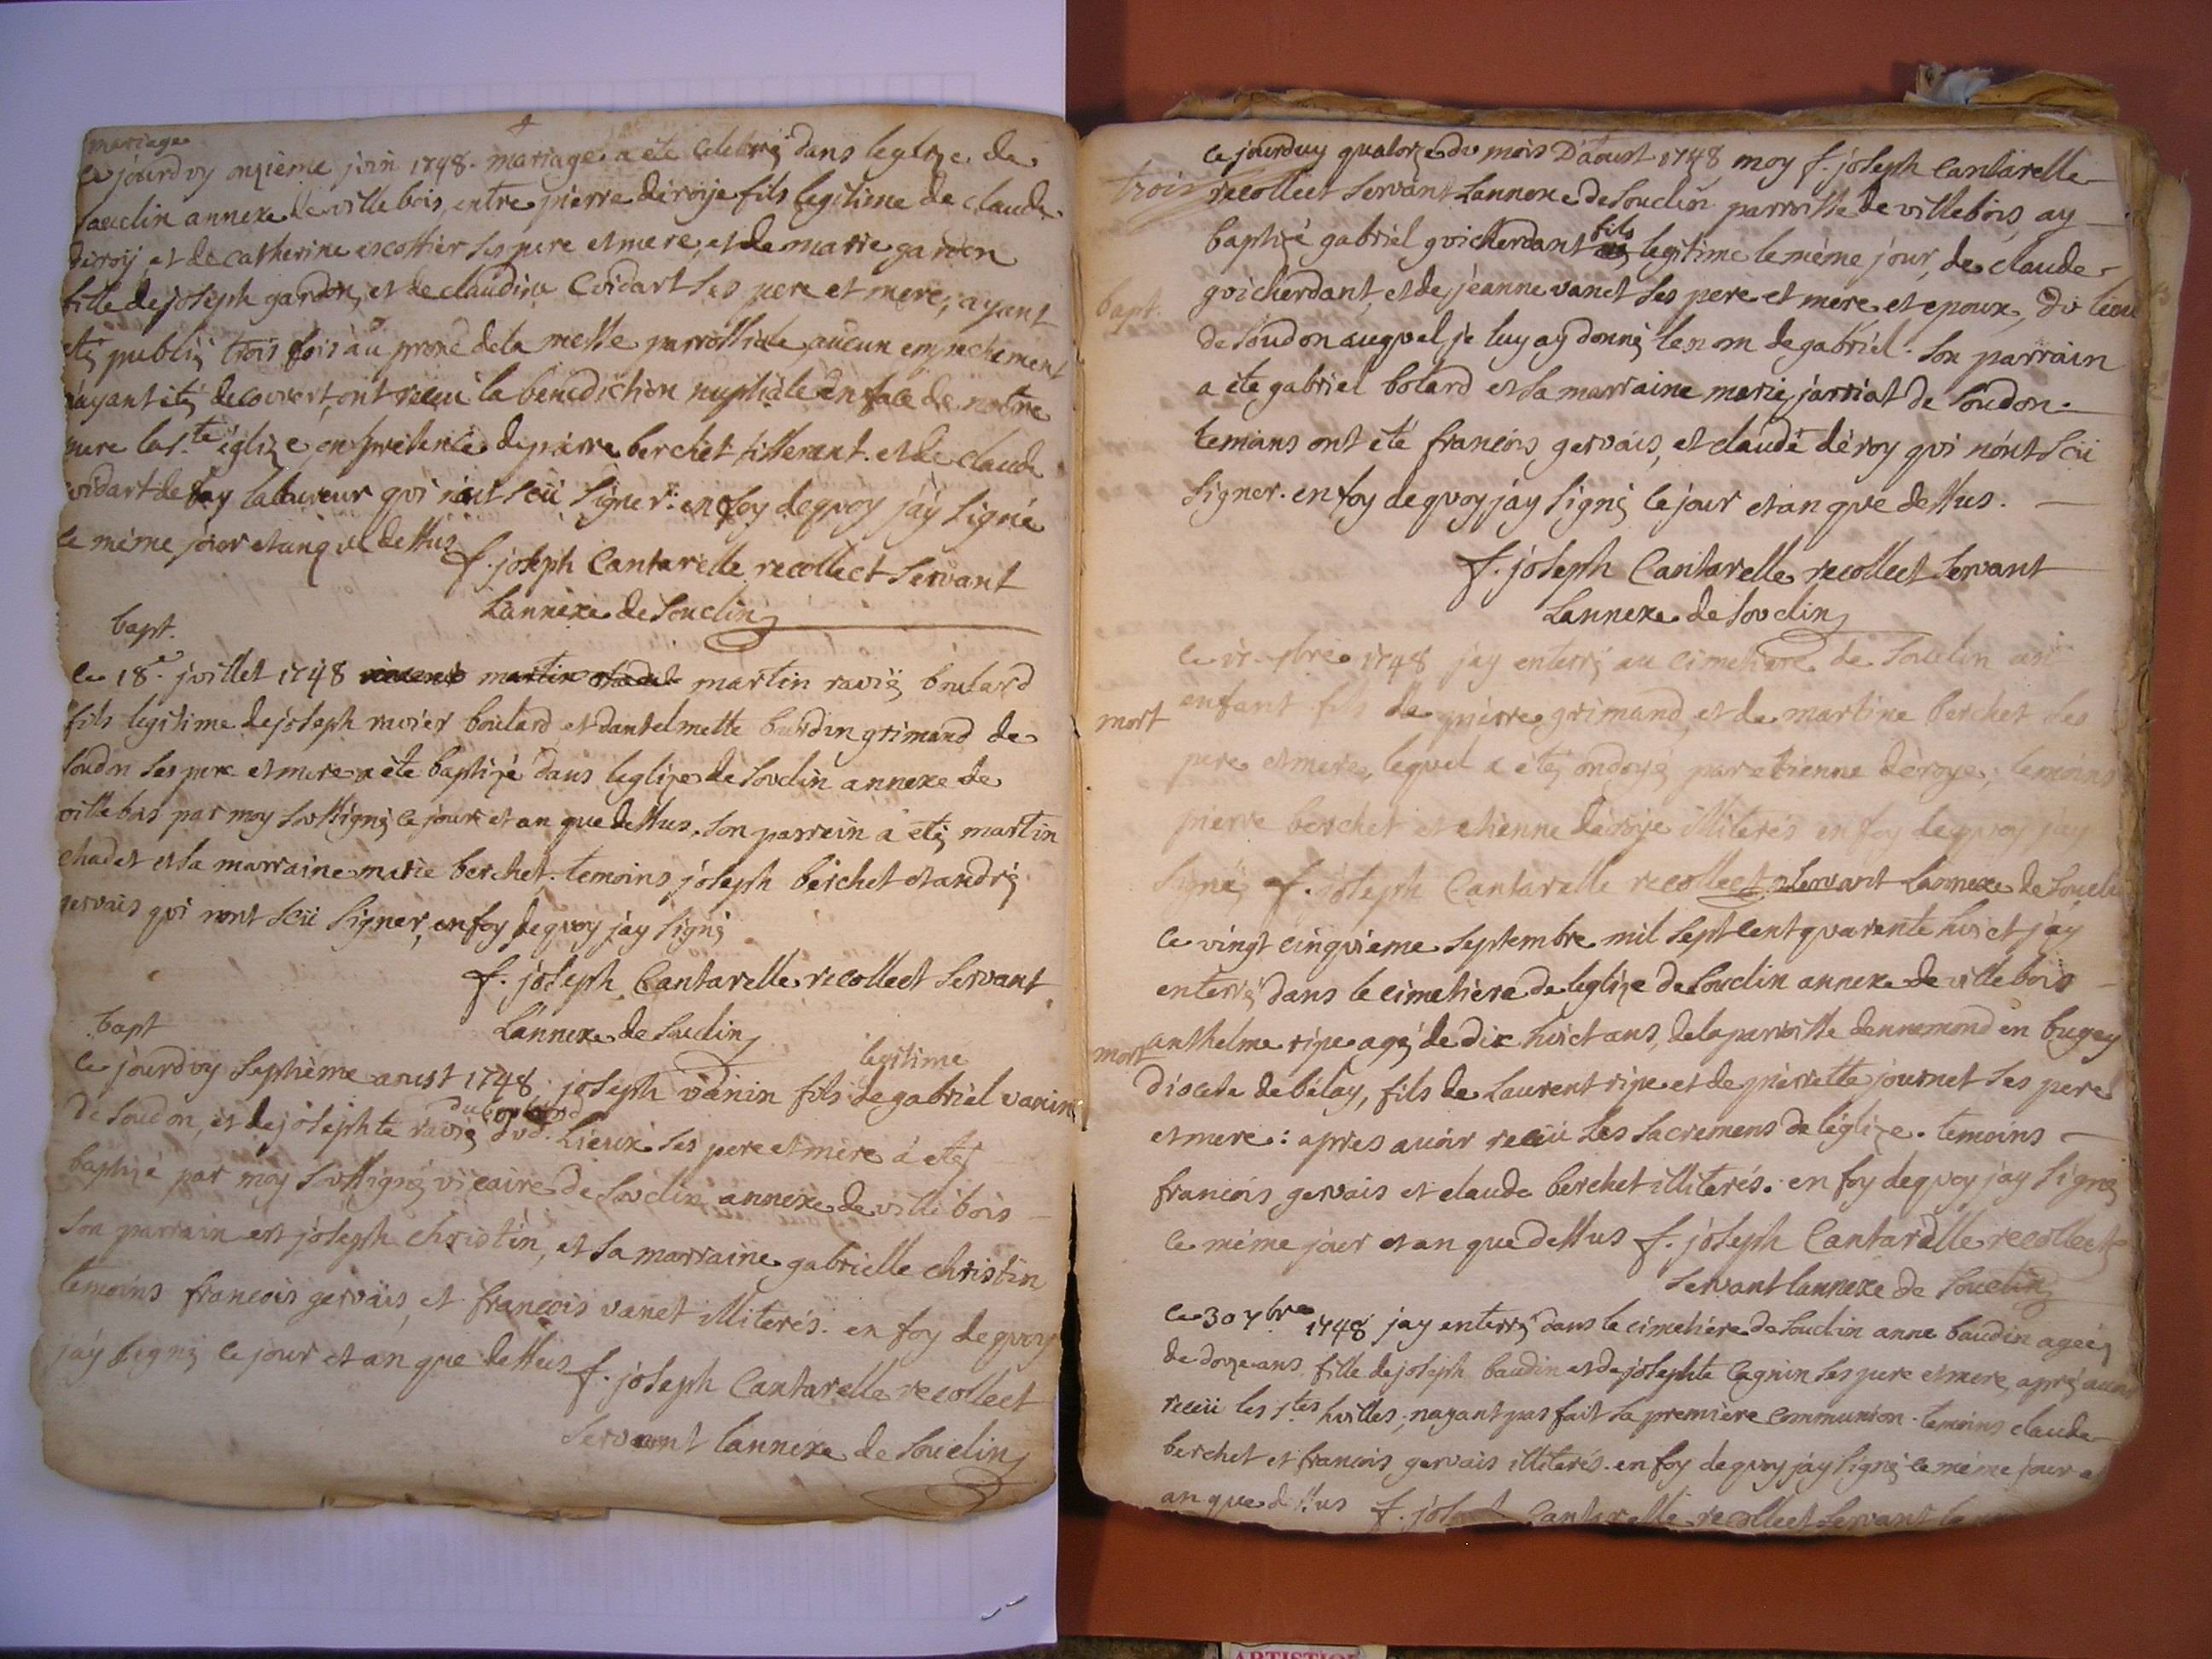 mariage
ce jourdvy onzième jvin 1748. mariage a été celebré dans leglize de
Souclin annexe de villebois, entre pierre déroÿe fils legitime de claude
déroÿ, et de catherine escoffier Ses pere et mere, et de marie gardon
fille de joseph gardon, et de claudine Cvidart Ses pere et mere, ayant
eté publié trois fois au prone de la messe parroissiale aucun empechement
nayant eté decouvert, ont receu la benediction nuptiale en face de notre
mere la s.te églize en presence de pierre berchet tisserant. et de claude
cvidart de fay laboureur qvi n'ont Sceü Signer: en foy dequoy jáy Signé
le méme jour et an qve dessus
f. joseph Cantarelle recollect Servant
Lannexe de Souclin
bapt.
Ce 18.e jvillet 1748 martin ravié boulard
fils legitime de joseph ravier boulard et dantelmette burdin grimand de
Soudon Ses pere et mere a été baptizé dans leglize de Souclin annexe de
villebois par moy Soussigné ce jour et an que dessus. Son parrein a eté martin
chadet et Sa marraine marie berchet. temoins joseph berchet et andré
gervais qvi nont Sceü Signer, en foy dequoy jay Signé
f. joseph Cantarelle recollect Servant
Lannexe de Souclin
bapt
Ce jourdvy Septiéme aoust 1748. joseph vanin fils legitime de gabriel vanin
de Soudon, et de josephte ravié du boulard dud. Lieux Ses pere et mere á eté
baptizé par moy Sussigné vicaire de Souclin annexe de villebois
Son parrain est joseph christin, et Sa marraine gabrielle christin
temoins francois gervais, et francois vanet illiterés. en foy dequoy
jáy Signé ce jour et an que dessus f. joseph Cantarelle recollect
Servant lannexe de Souclin
Ce jourduy quatorze dv mois D'aoust 1748 moy f. joseph Cantarelle
trois
recollect Servant Lannexe de Souclin parroisse de villebois, ay
baptizé gabriel gvicherdant fils legitime le méme jour, de claude
gvicherdant, et de jéanne vanet Ses pere et mere et epoux, dv lieu
bapt.
de Soudon auqvel je luy ay donné le nom de gabriel. Son parrain
a éte gabriel bolard et Sa marraine marie jarriat de Soudon.
temians ont été francois gervais, et claude déroy qvi nónt Sceü
Signer. en foy de qvoy jay Signé le jour et an qve dessus.
f. joseph Cantarelle recollect Servant
Lannexe de Sovclin
7bre 1748 jay enterré au cimetiere de Souclin un
enfant fils de pierre grimand, et de martine berchet Ses
mort
pere et mere, lequel a eté ondoyé par etienne déroye; temoins
pierre berchet et etienne déroye illiterés en foy dequoy jay
Signé f. joseph Cantarelle recollect Servant Lannexe de Soucli
Ce vingt cinqvieme Septembre mil Sept cent qvarente hvict j'ay
enterré dans le cimetiére de leglize de Souclin annexe de villebois
mort
anthelme ripe agé de dix hvict ans, de la parroisse dennemond en bugey
diocese de bélay, fils de Laurent ripe et de pierrette journet Ses pere
et mere: apres avoir receü Les Sacremens de léglize. temoins
francois gervais et claude berchet illiterés. en foy dequoy jay Signé
le méme jour et an que dessus f. joseph Cantarelle recollect
Servant lannexe de Souclin
Ce 30 7bre 1748 jay enterré dans le cimetiére de Souclin anne baudin ageé
de douze ans fille de joseph baudin et de josephte Cagnin Ses pere et mere, aprés avoir
receü les s.tes hvilles, nayant pas fait Sa premiere Communion. temoins claude
berchet et francois gervais illiterés. en foy dequoy jay Signé le méme jour et
an que dessus f. joseph Cantarelle recollect Servant
ARTISTIQUE